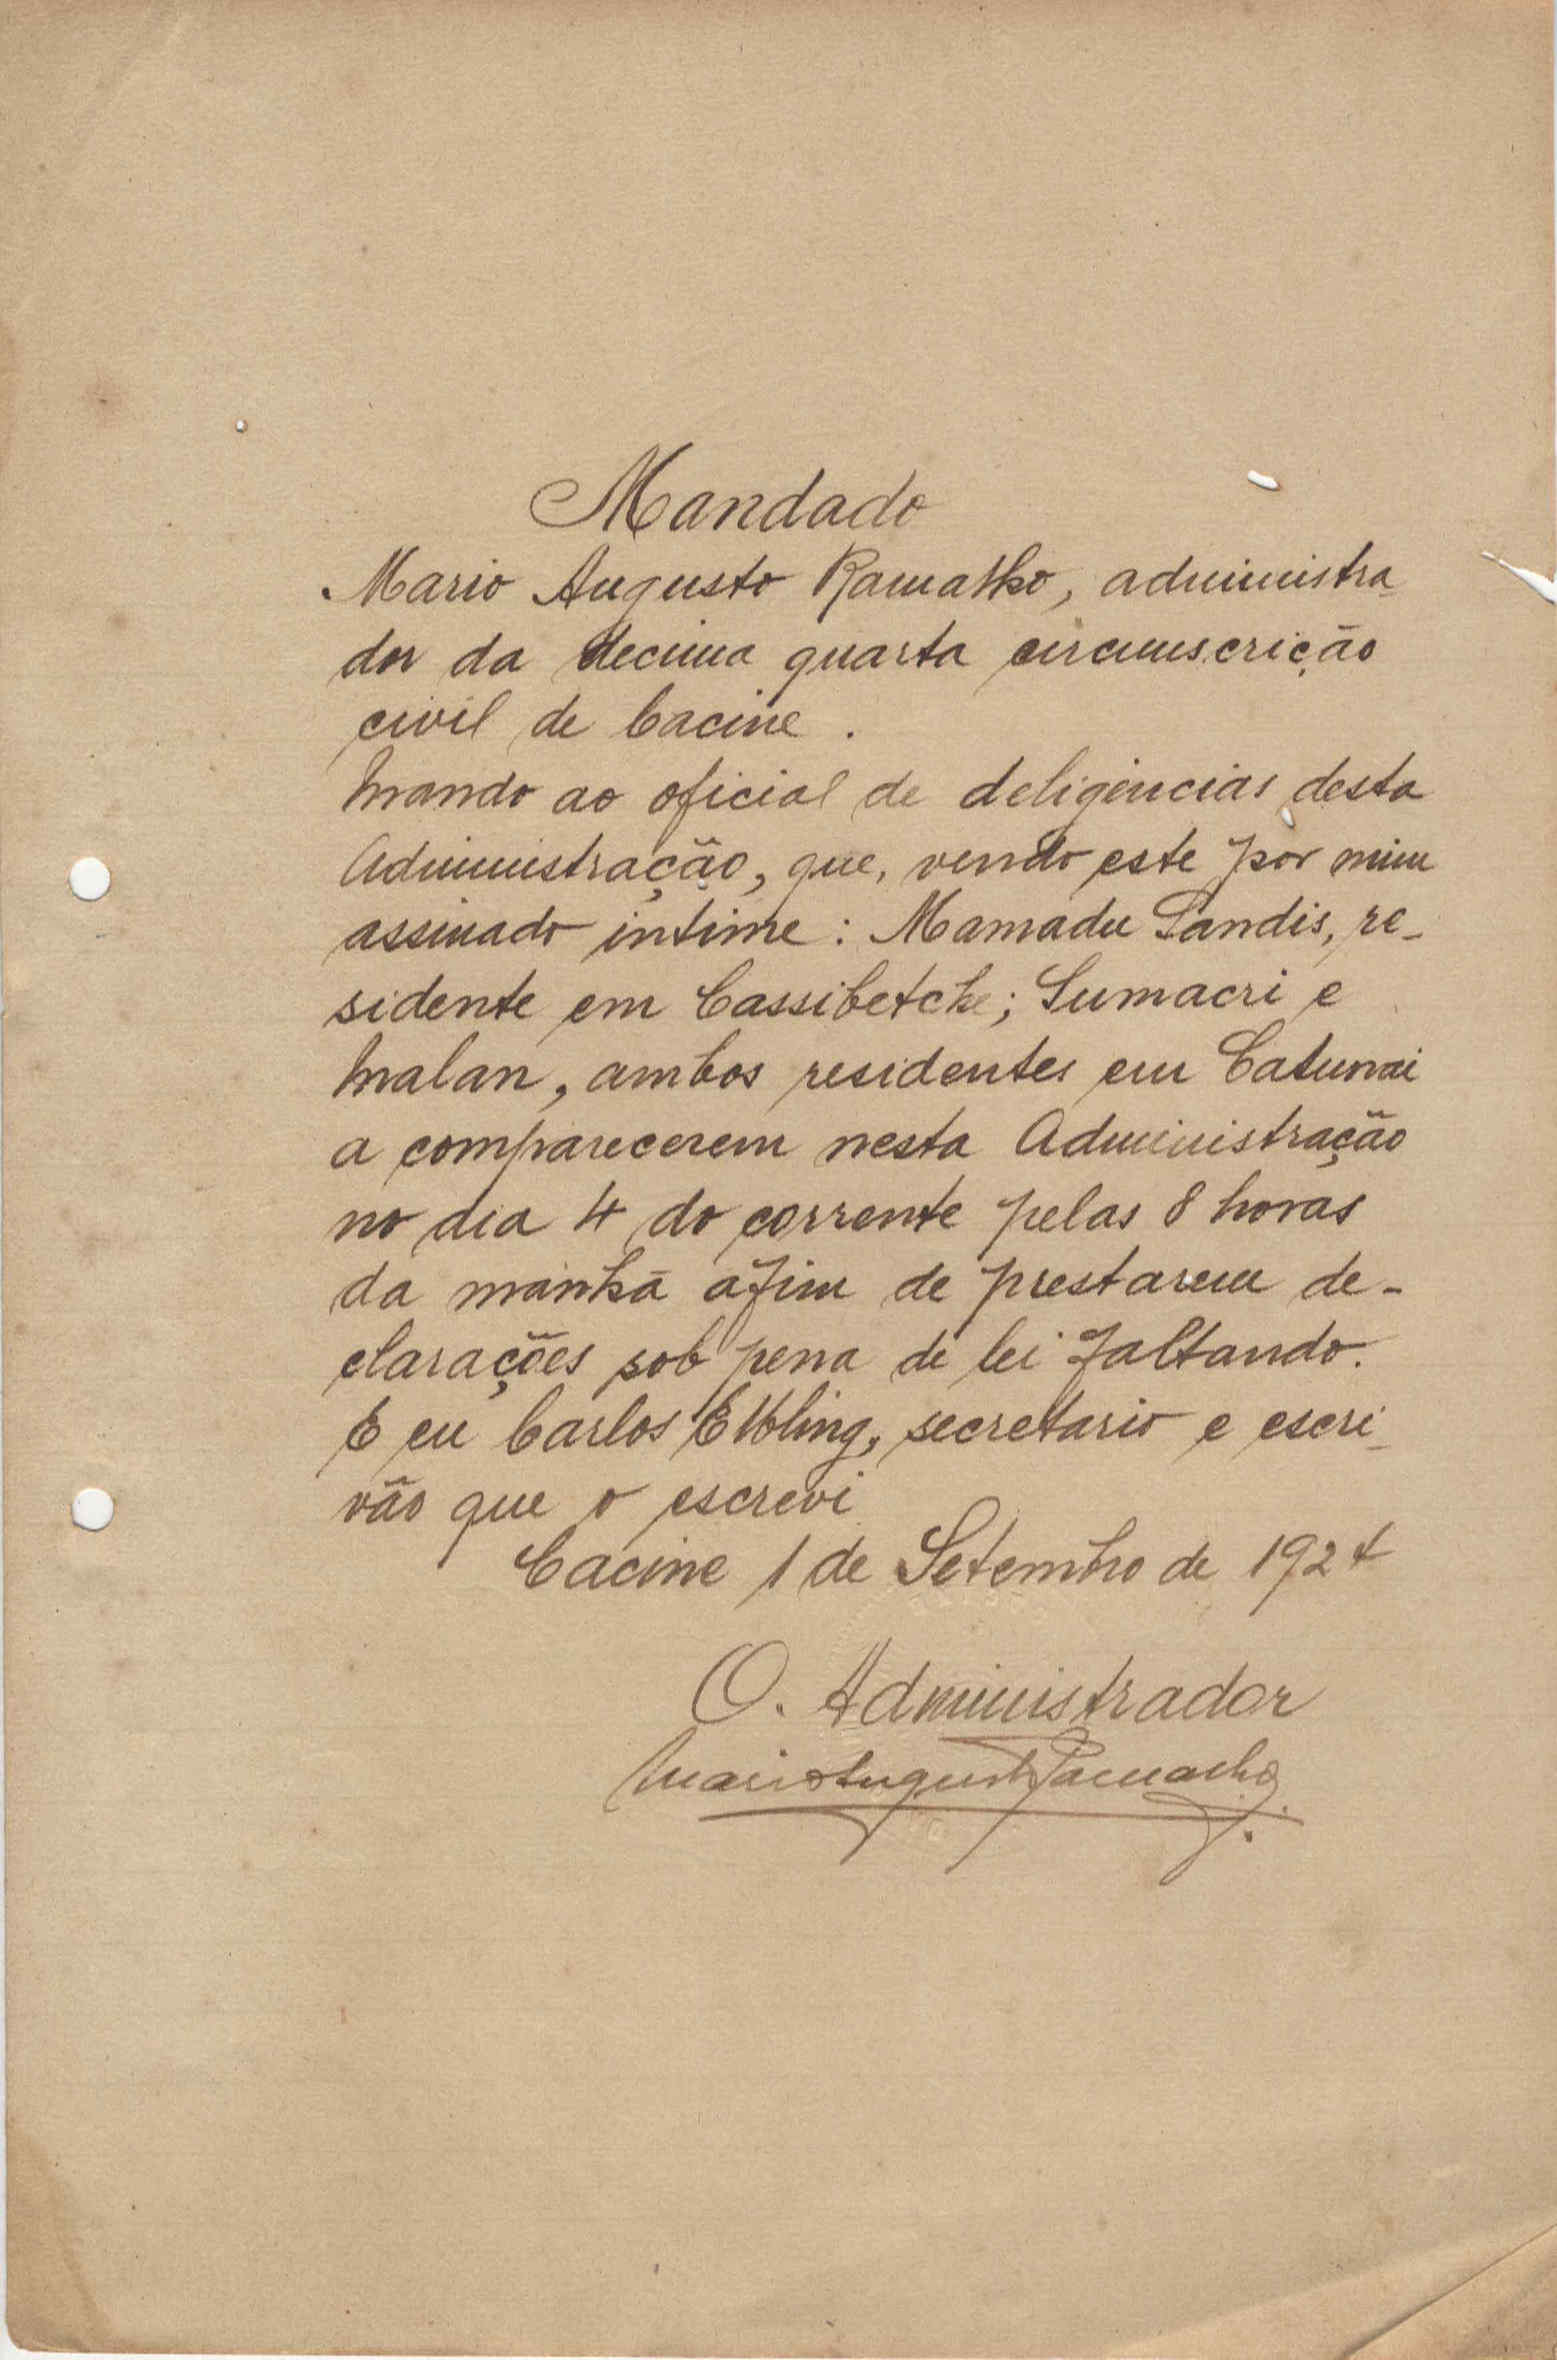 Mandado
Mario Augusto Ramalho, administra-
dor da decima quarta circunscrição
civil de Cacine.
Mando ao oficial de deligências desta
Administração, que, vendo este por mim
assinado intime: Mamadu Sandis, re-
sidente em Cassibetche; Sumacri e
Malan, ambos residentes em Catunai
a comparecerem nesta Administração
no dia 4 do corrente pelas 8 horas
da manhã afim de prestarem de-
clarações sob pena de lei faltando.
E eu Carlos Ebling, secretario e escri-
vão que o escrevi
Cacine 1 de Setembro de 1924
O. Administrador
Mario Augusto Ramalho